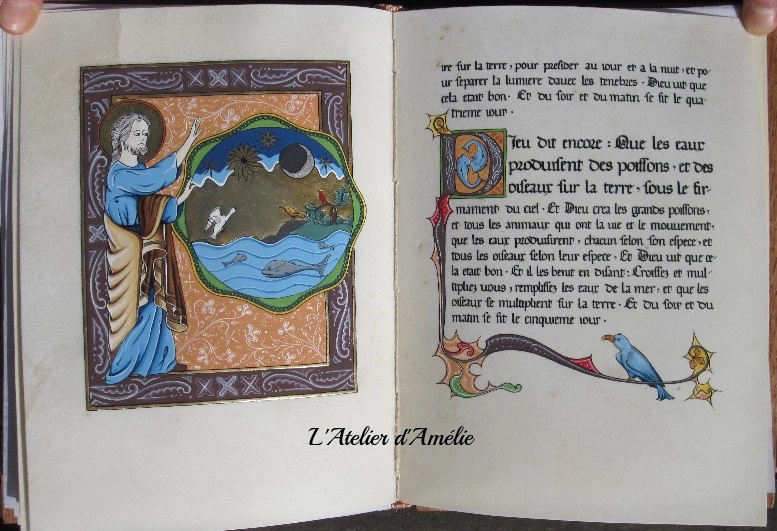 ire sur la terre, pour presider au iour et a la nuit, et po-
ur separer la lumiere dauec les tenebres. Dieu uit que
cela etait bon. Et du soir et du matin se fit le qua-
trieme iour.
Dieu dit encore: Que les eaux
produisent des poissons, et des
oiseaux sur la terre, sous le fir-
mament du ciel. Et Dieu crea les grands poissons,
et tous les animaux qui ont la uie et le mouuement,
que les eaux produisirent, chacun selon son espece, et
tous les oiseaux selon leur espece. Et Dieu uit que ce-
la etait bon. Et il les benit en disant: Croissez et mul-
tipliez uous, remplissez les eaux de la mer, et que les
oiseaux se multiplient sur la terre. Et du soir et du
matin se fit le cinquieme iour.
L'Atelier d'Amélie